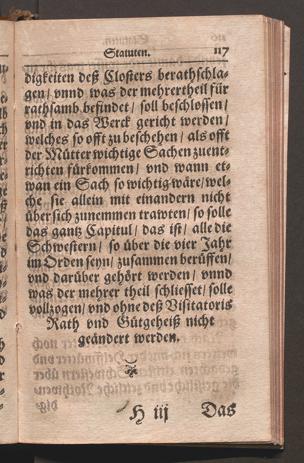 Statuten. 117
digkeiten deß Closters berathschla-
gen/ vnnd was der mehrertheil für
rathsamb befindet/ soll beschlossen/
vnd in das Werck gericht werden/
welches so offt zu beschehen/ als offt
der Mütter wichtige Sachen zuent-
richten fürkommen/ vnd wann et-
wan ein Sach so wichtig wäre/ wel-
che sie allein mit einander nicht
über sich zunemmen trawten/ so solle
das gantz Capitul/ das ist/ alle die
Schwestern/ so über die vier Jahr
im Orden seyn/ zusammen berüffen/
vnd darüber gehört werden/ vnnd
was der mehrer theil schliesset/ solle
vollzogen/ vnd ohne deß Visitatoris
Rath vnd Gütgeheiß nicht
geändert werden.
H iij Das